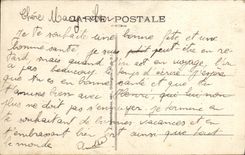 Chère
CARTE POSTALE
Je te souhaite une bonne fête et une
bonne santé je suis peut être en re
tard mais quand l'on est en voyage, l'on
a pas beaucoup le temps d'écrire. J'espère
que tu es en bonne santé et que tu
t'amuses bien avec
ne doit pas s'ennuyer. Je termine a
te souhaitant de bonnes vacances et en
t'embrassant bien fort ainsi que tout
le monde. André